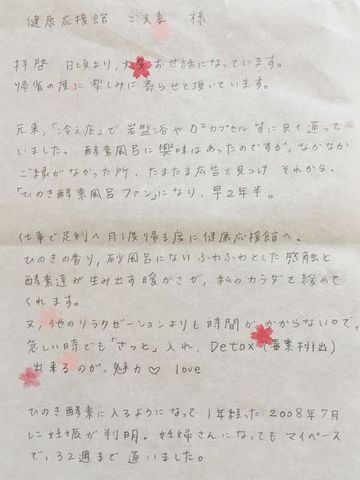 健康応援館 ご夫妻 様
拝啓 日頃より、大変お世話になっています。
帰省の度に楽しみに寄らせて頂いています。
元来、「冷え症」で岩盤浴やO²カプセル等に良く通って
いました。酵素風呂に興味はあったのですが、なかなか
ご縁がなかった所、たまたま広告を見つけ それから、
「ひのき酵素風呂ファン」になり、早2年半。
仕事で足利へ月1度帰る度に健康応援館へ。
ひのきの香り、砂風呂にないふわふわとした感触と
酵素達が生み出す暖かさが、私のカラダを緩めて
くれます。
又、他のリラクゼーションよりも時間がかからないので、
急しい時でも「さっと」入れ、Detox(毒素排出)
出来るのが、魅力♡ love
ひのき酵素に入るようになって1年経った2008年7月
に妊娠が判明。妊婦さんになってもマイペース
で、32週まで通いました。